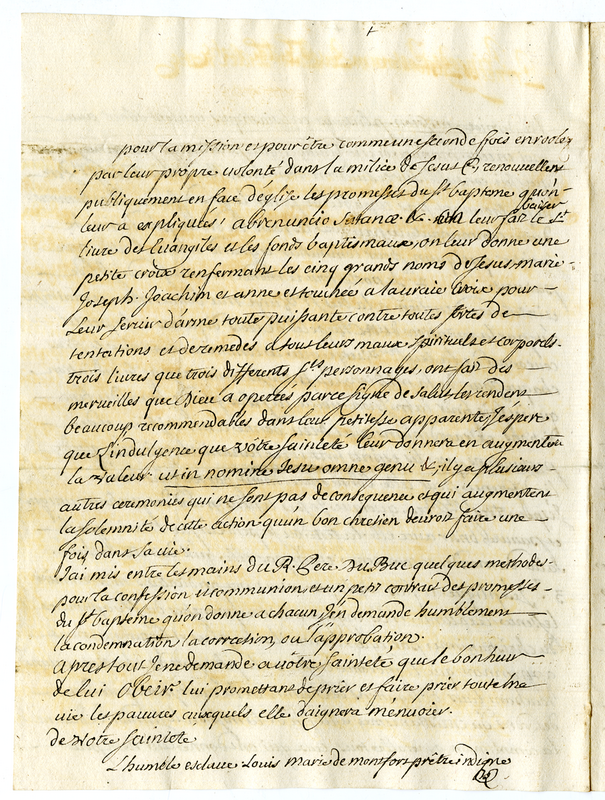 pour la mission et pour être comme une seconde ffois enroolez
par leur propre volonté dans la milice de Jesus C, renouvellent
publiquement en face d'eglise les promesses du st bapteme qu'on
leur a expliquées: abrenuncio satanæ &. on leur fait baiser le st
livre des Evangiles et les fonds baptismaux, on leur donne une
petite croix renfermant les cinq grands noms de Jesus marie
Joseph. Joachim et anne et touchée a la vraie croix pour
leur servir d'arme toute puissante contre toutes sortes de
tentations et de remedes a tous leurs maux spirituels et corporels.
trois livres que trois differents sts personnages, ont fait des
merveilles que Dieu a operées par ce signe de salut les rendent
beaucoup recommendables dans leur petitesse apparente, J'espere
que l'indulgence que vôtre sainteté leur donnera en augmentera
la valeur. ut in nomine Jesu omne genu &, il y a plusieurs
autres ceremonies qui ne sont pas de consequence et qui augmentent
la solemnité de cete action qu'un bon chretien devroit faire une
fois dans sa vie.
J'ai mis entre les mains du R. Pere Du Buc quelques methodes
pour la confession et communion, et un petit contrat des promesses
du st bapteme qu'on donne a chacun J'en demande humblement
la condemnation la correction, ou l'approbation.
apres tout Je ne demande a votre sainteté que le bonheur
de lui obeir lui promettant de prier et faire prier toute ma
vie les pauvres auxquels elle daignera m'envoier.
de votre sainteté
L'humble esclave Louis Marie de montfort prêtre indigne